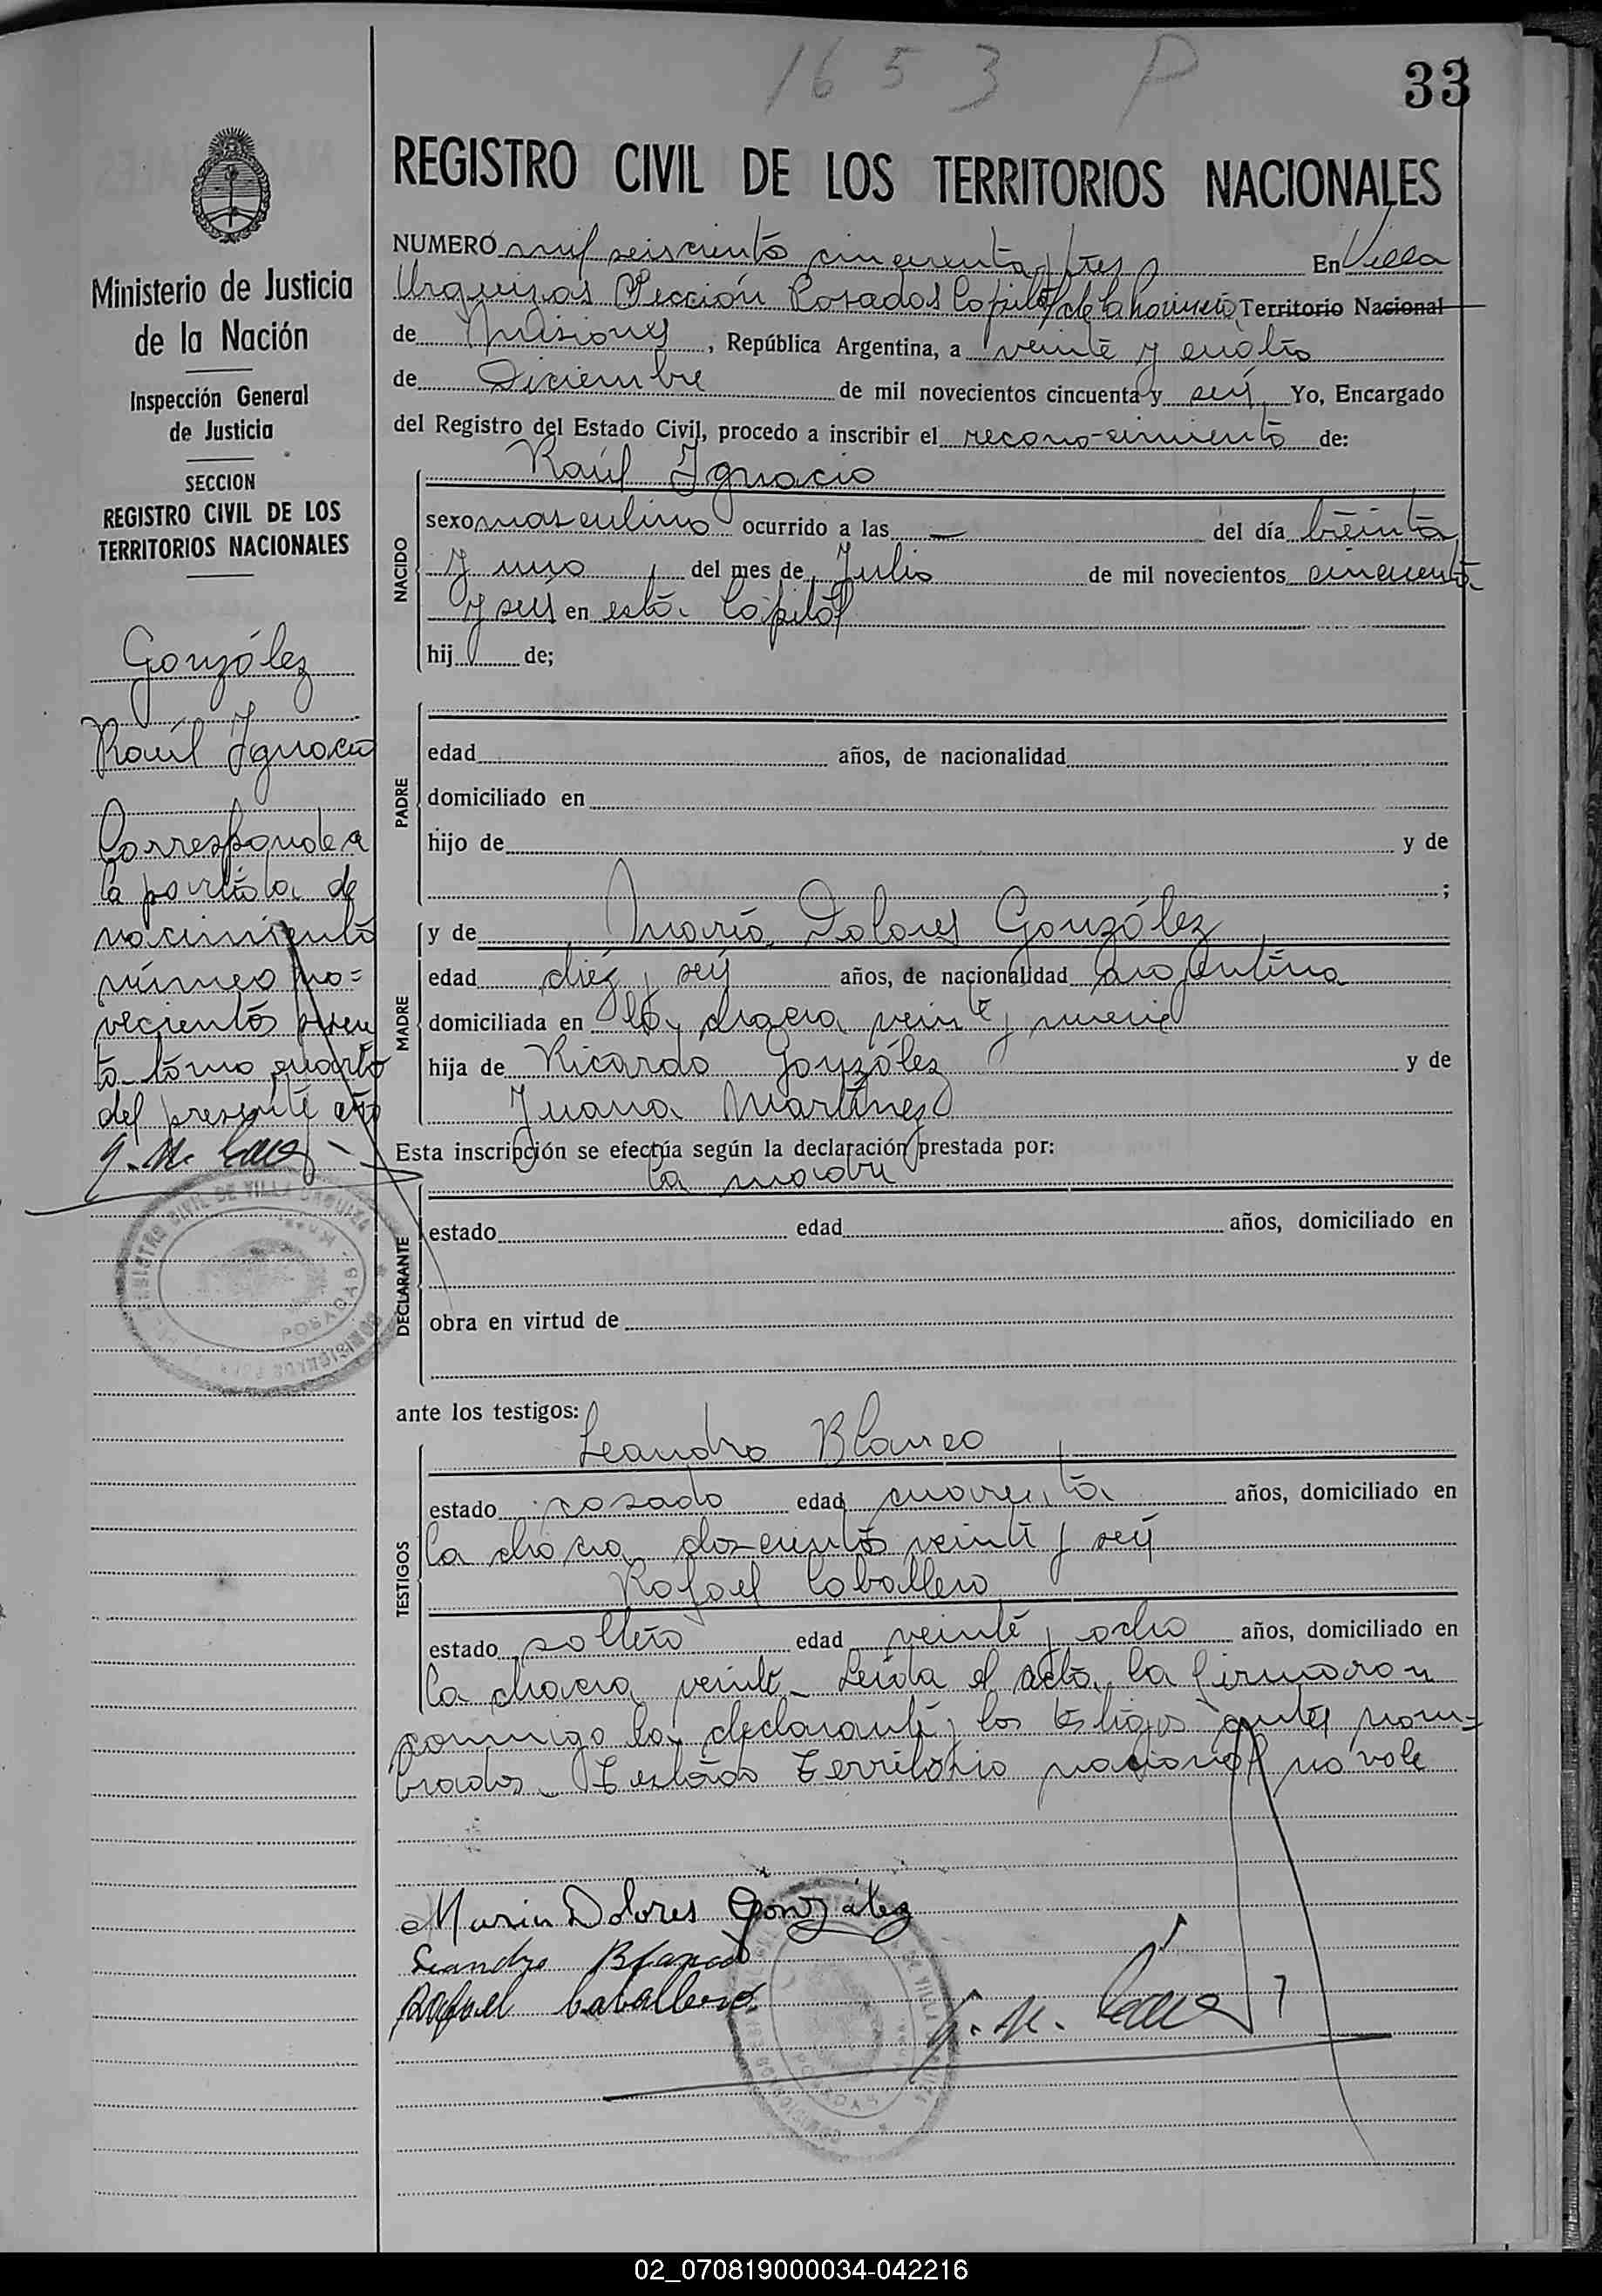 1653 P
33
REGISTRO CIVIL DE LOS TERRITORIOS NACIONALES
NUMERO mil seiscientos cincuenta y tres En Villa
Urquizas Sección Posadas Capital de la Provincia Territorio Nacional
de Misiones, República Argentina, a veinte y cuatro
de Diciembre de mil novecientos cincuenta y seis Yo, Encargado
del Registro del Estado Civil, procedo a inscribir el recono-cimiento de:
NACIDO
Raúl Ignacio
sexo masculino ocurrido a las — del día treinta
y uno del mes de Julio de mil novecientos cincuenta
y seis en esta Capital
hij de;
PADRE
edad años, de nacionalidad
domiciliado en
hijo de y de
;
MADRE
y de María Dolores González
edad diez y seis años, de nacionalidad argentina
domiciliada en la chacra veinte y nueve
hija de Ricardo González y de
Juana Martínez
Esta inscripción se efectúa según la declaración prestada por:
DECLARANTE
la madre
estado edad años, domiciliado en
obra en virtud de
ante los testigos:
TESTIGOS
Leandro Blanco
estado casado edad cuarenta años, domiciliado en
la chacra doscientos veinte y seis
Rafael Caballero
estado soltero edad veinte y ocho años, domiciliado en
la chacra veinte. Leída el acta, la firmaron
conmigo la declarante y los testigos antes nom=
brados. Testado Territorio nacional no vale
Maria Dolores González
Leandro Blanco
Rafael Caballero
Ministerio de Justicia
de la Nación
Inspección General
de Justicia
SECCION
REGISTRO CIVIL DE LOS
TERRITORIOS NACIONALES
González
Raúl Ignacio
Corresponde a
la partida de
nacimiento
número no=
vecientos
tomo cuarto
del presente año
REGISTRO CIVIL DE VILLA URQUIZA
POSADAS
POSADAS
02_070819000034-042216